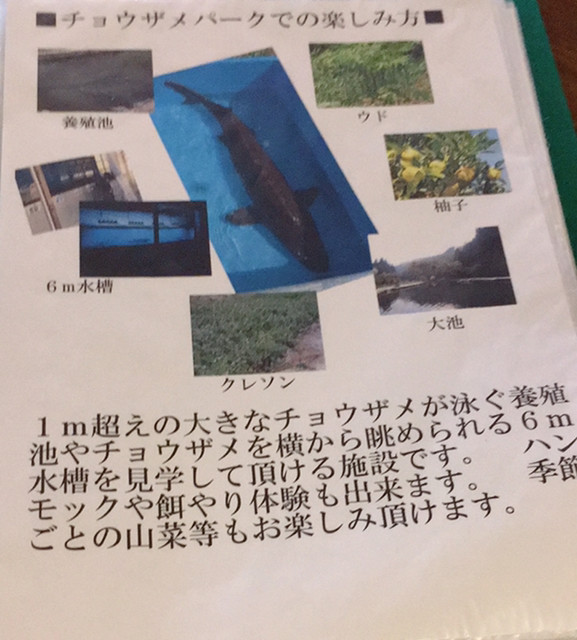 ■チョウザメパークでの楽しみ方■
養殖池
ウド
柚子
6m水槽
大池
クレソン
1m超えの大きなチョウザメが泳ぐ養殖
池やチョウザメを横から眺められる6m
水槽を見学して頂ける施設です。 ハン
モックや餌やり体験も出来ます。 季節
ごとの山菜等もお楽しみ頂けます。